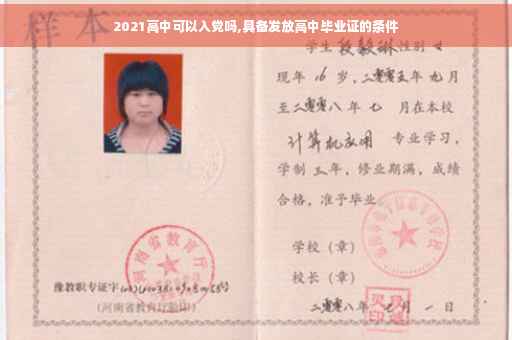 2021高中可以入党吗,具备发放高中毕业证的条件
样本
学生 段毅琳 性别 女
现年 16 岁,二零零五年 九月
至二零零八年 七 月在本校
计算机应用 专业学习,
学制 三年,修业期满,成绩
合格,准予毕业
学校(章)
校长(章)
二零零八年 七 月 一 日
河南省教育厅
豫教职专证字
(河南省教育厅验印)